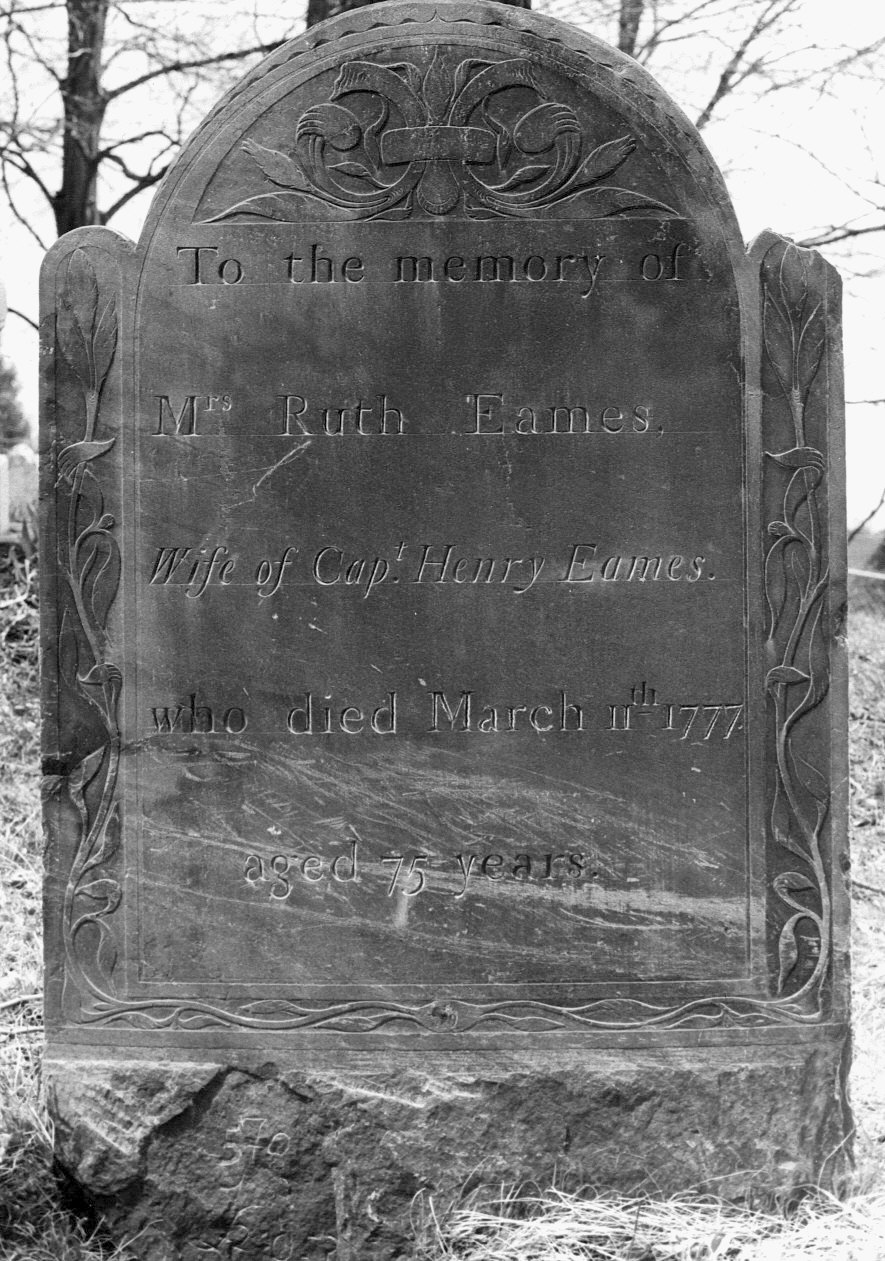 To the memory of
Mrs Ruth Eames.
Wife of Capt. Henry Eames.
who died March 11th 1777.
aged 75 years.
570